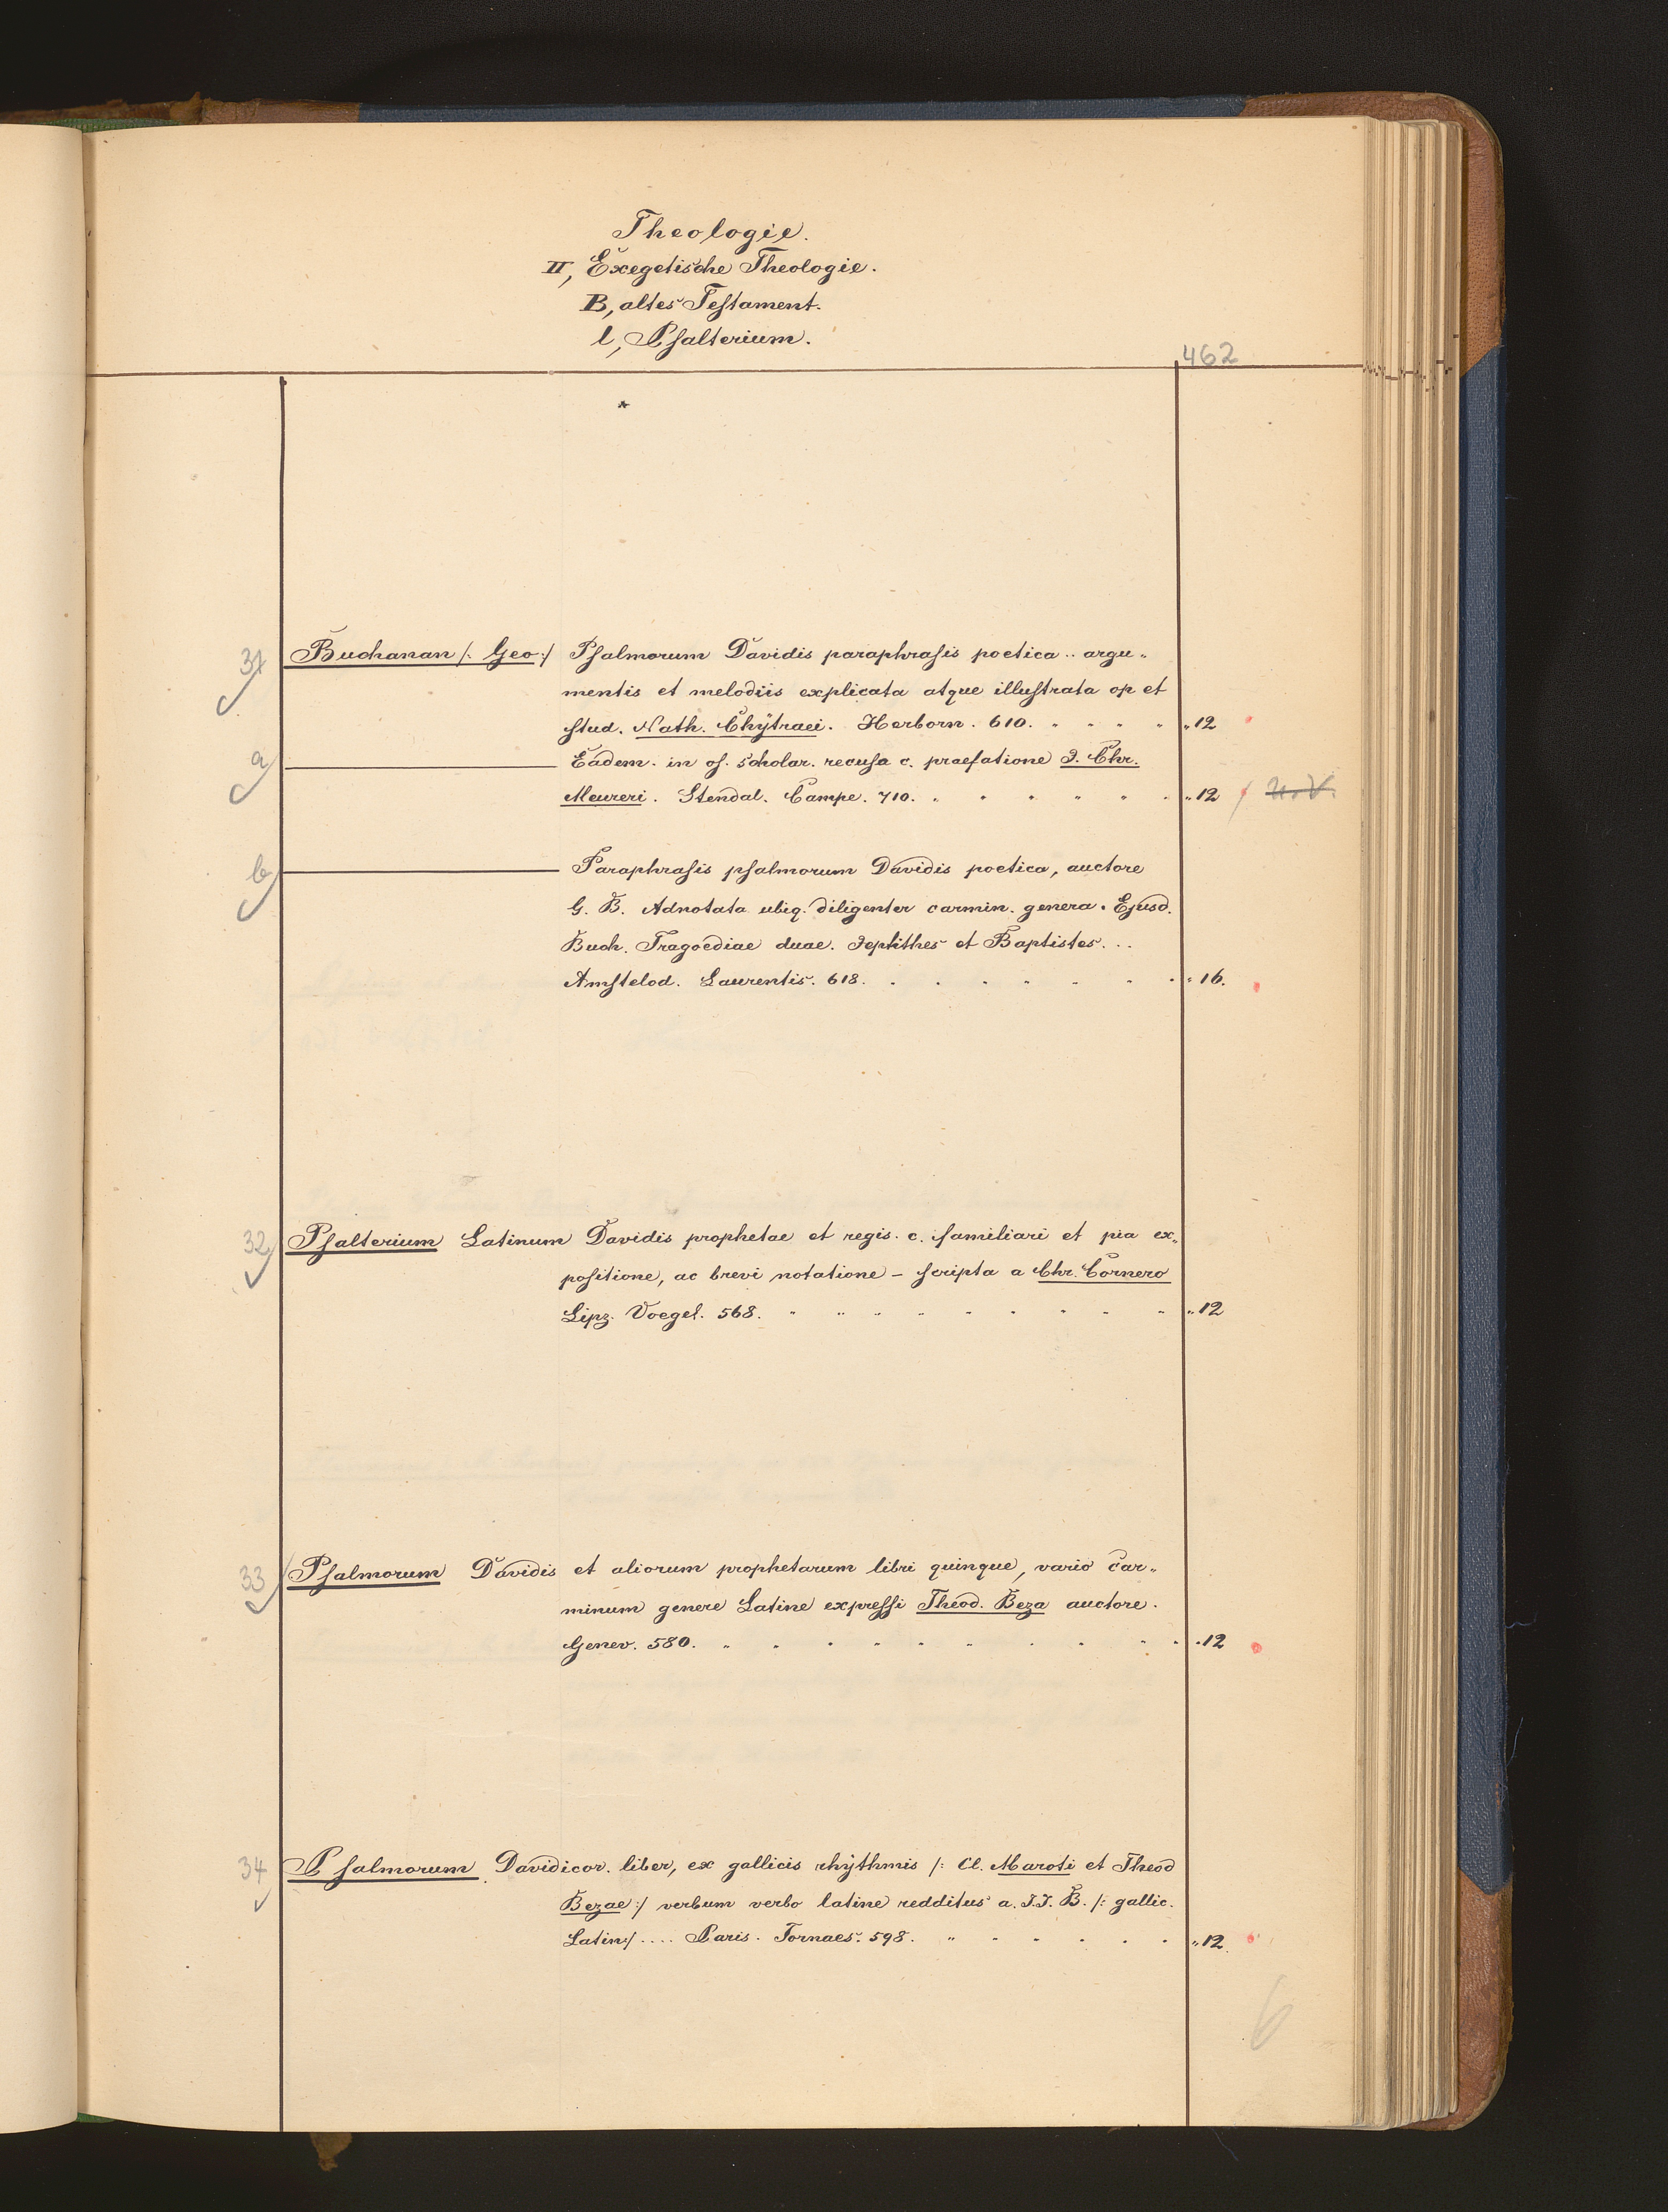 Theologie.
II, Exegetische Theologie.
B, altes Testament.
l, Psalterium.
462
*
31 Buchanan /: Geo :/ Psalmorum Davidis paraphrasis poetica .. argu„
mentis et melodiis explicata atque illustrata op et
stud. Nath. Chÿtraei. Herborn. 610. „ 12
a Eadem. in us. scholar. recusa c. praefatione J. Chr.
Meureri. Stendal. Campe. 710. „ 12
b Paraphrasis psalmorum Davidis poetica, auctore
G. B. Adnotata ubiq. diligenter carmin. genera. Ejusd.
Buch. Tragoediae duae. Jephthes et Baptistes...
Amstelod. Laurentis. 618. „ 16.
32 Psalterium Latinum Davidis prophetae et regis. c. familiari et pia ex„
positione, ac brevi notatione – scripta a Chr. Cornero
Lipz. Voegel. 568. „ 12
33 Psalmorum Davidis et aliorum prophetarum libri quinque, vario car„
minum genere Latine expressi Theod. Beza auctore.
Genev. 580. „ 12
34 Psalmorum Davidicor. liber, ex gallicis rhÿthmis /: Cl. Maroti et Theod
Bezae :/ verbum verbo latine redditus a. J.J. B. /: gallic.
Latin :/ .... Paris. Tornaes. 598. „ 12.
6